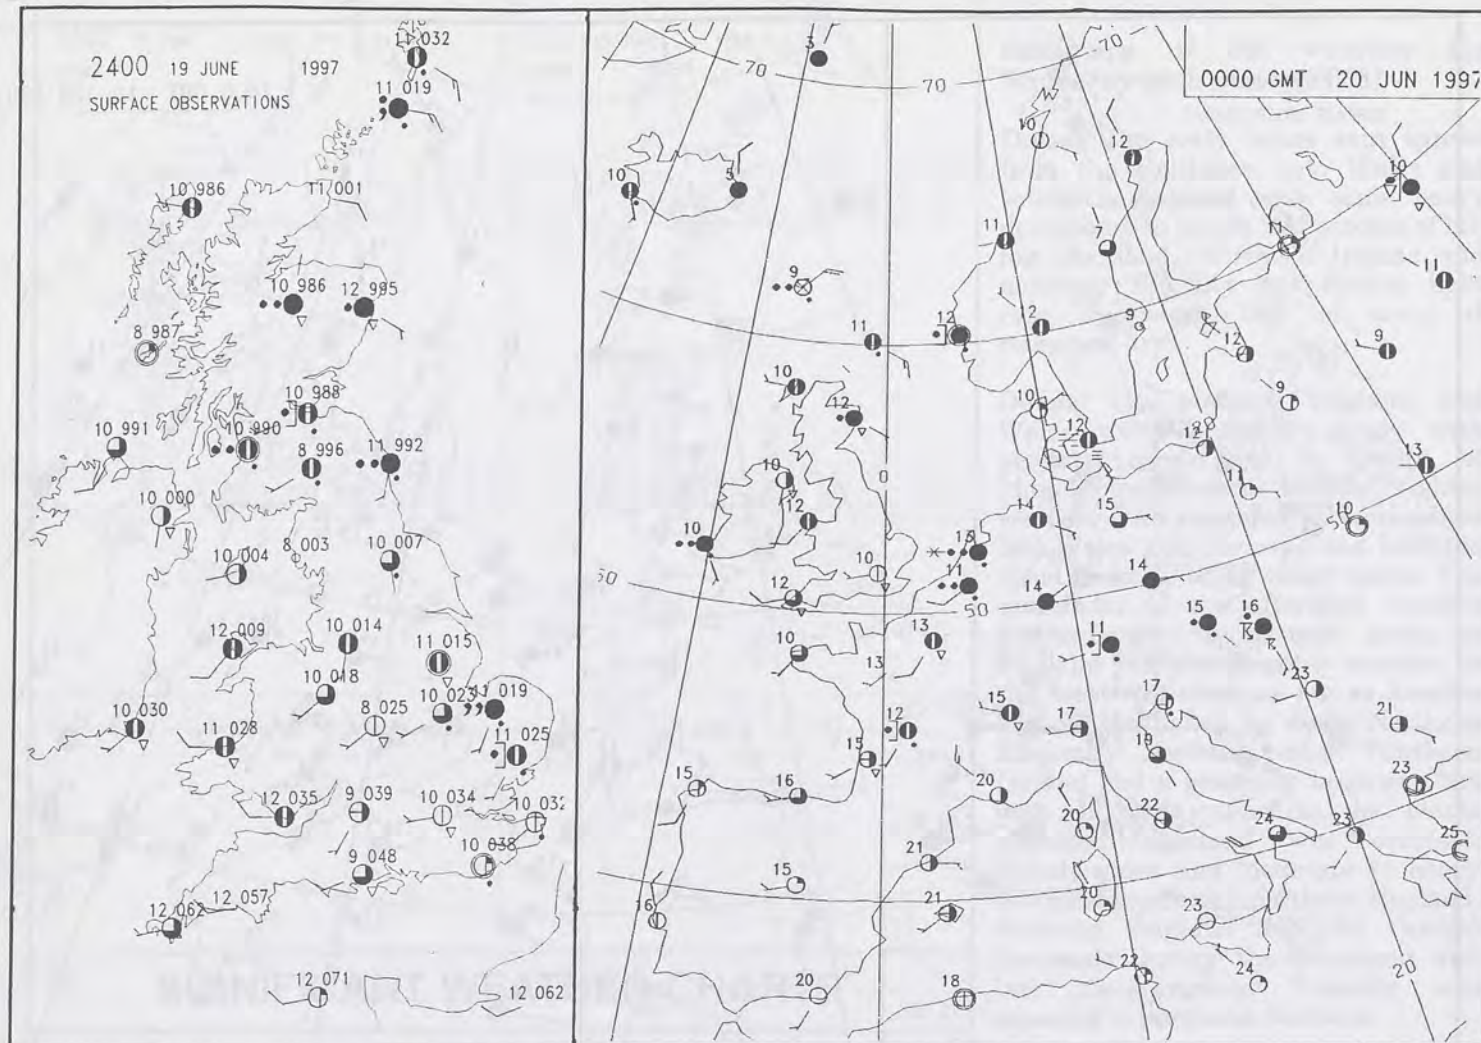 2400 19 JUNE 1997
SURFACE OBSERVATIONS
11 032
11 019
10 986
11 001
10 986
12 995
8 987
10 988
10 991
10 990
8 996
11 992
10 000
10 004
8 003
10 007
12 009
10 014
11 015
10 018
10 023
11 019
10 030
11 028
8 025
11 025
12 035
9 039
10 034
10 032
10 038
9 048
12 057
12 062
12 071
12 062
0000 GMT 20 JUN 1997
3
70
70
70
10
12
10
10
5
11
7
11
11
9
12
12
9
12
9
11
10
12
10
9
12
12
13
10
0
12
14
15
11
10
10
15
10
11
12
50
14
14
15
16
10
13
11
13
23
15
17
17
21
12
15
19
23
15
16
20
20
22
24
23
25
21
15
16
21
20
23
20
18
22
24
20